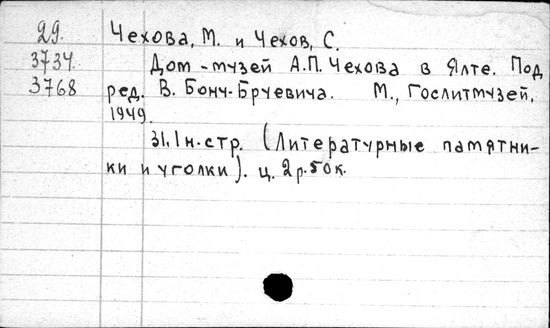 29.
3734.
3768
Чехова, М. и Чехов, С.
Дом-музей А.П. Чехова в Ялте. Под
ред. В. Бонч-Бруевича. М., Гослитмузей,
1949.
31, 1 н. стр. (Литературные памятни-
ки и уголки). ц. 2 р. 50 к.